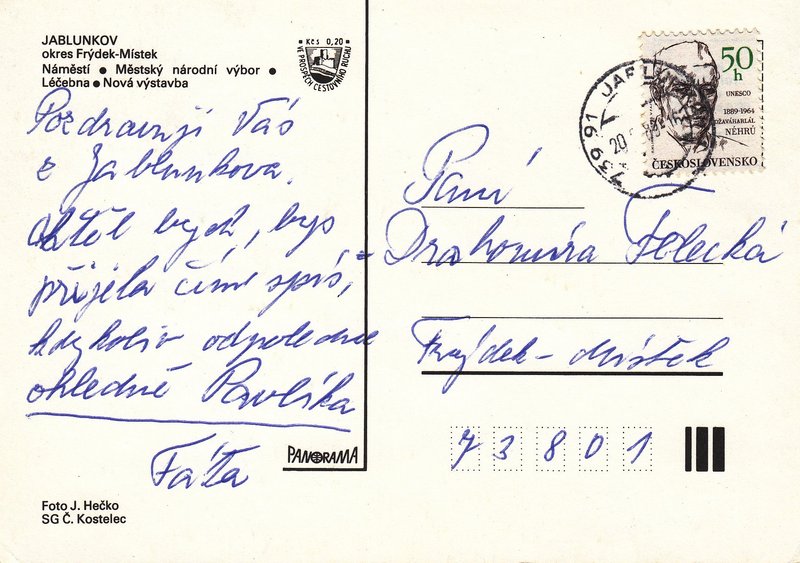 JABLUNKOV
okres Frýdek-Místek
Náměstí ● Městský národní výbor ●
Léčebna ● Nová výstavba
Kčs 0,20
VE PROSPĚCH CESTOVNÍHO RUCHU
Pozdravuji Vás
z Jablunkova.
chtěl bych, bys
přijela čím spíš,
kdykoliv odpoledne
ohledně Pavlíka
Táta
PANORAMA
Foto J. Hečko
SG Č. Kostelec
50
h
UNESCO
1889-1964
NÉHRÚ
ČESKOSLOVENSKO
739 91 JABLUNKOV
20
Paní
Drahomíra Folecká
Frýdek-Místek
73801